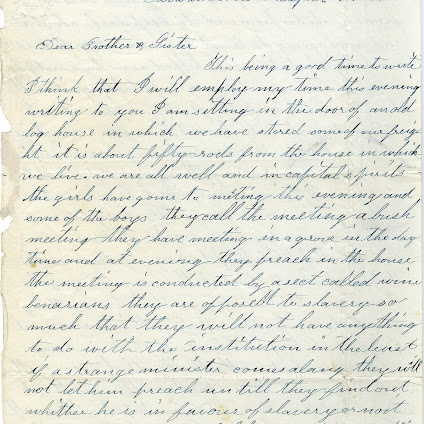 Dear Brother & Sister
This being a good time to write
I think that I will employ my time this evening
writing to you I am sitting in the door of an old
log house in which we have stored some of our freig
ht it is about fifty rods from the house in which
we live. we are all well and in capital spirits
the girls have gone to meting this evening and
some of the boys they call the meeting a bush
meeting they have meeting in a grove in the day
time and at evening they preach in the house
the meeting is conducted by a sect called wine
benarians they are opposed to slavery so
much that they will not have anything
to do with the institution in the least
if a strange minister comes along they will
not let him preach untill they find out
whither he is in favour of slavery or not